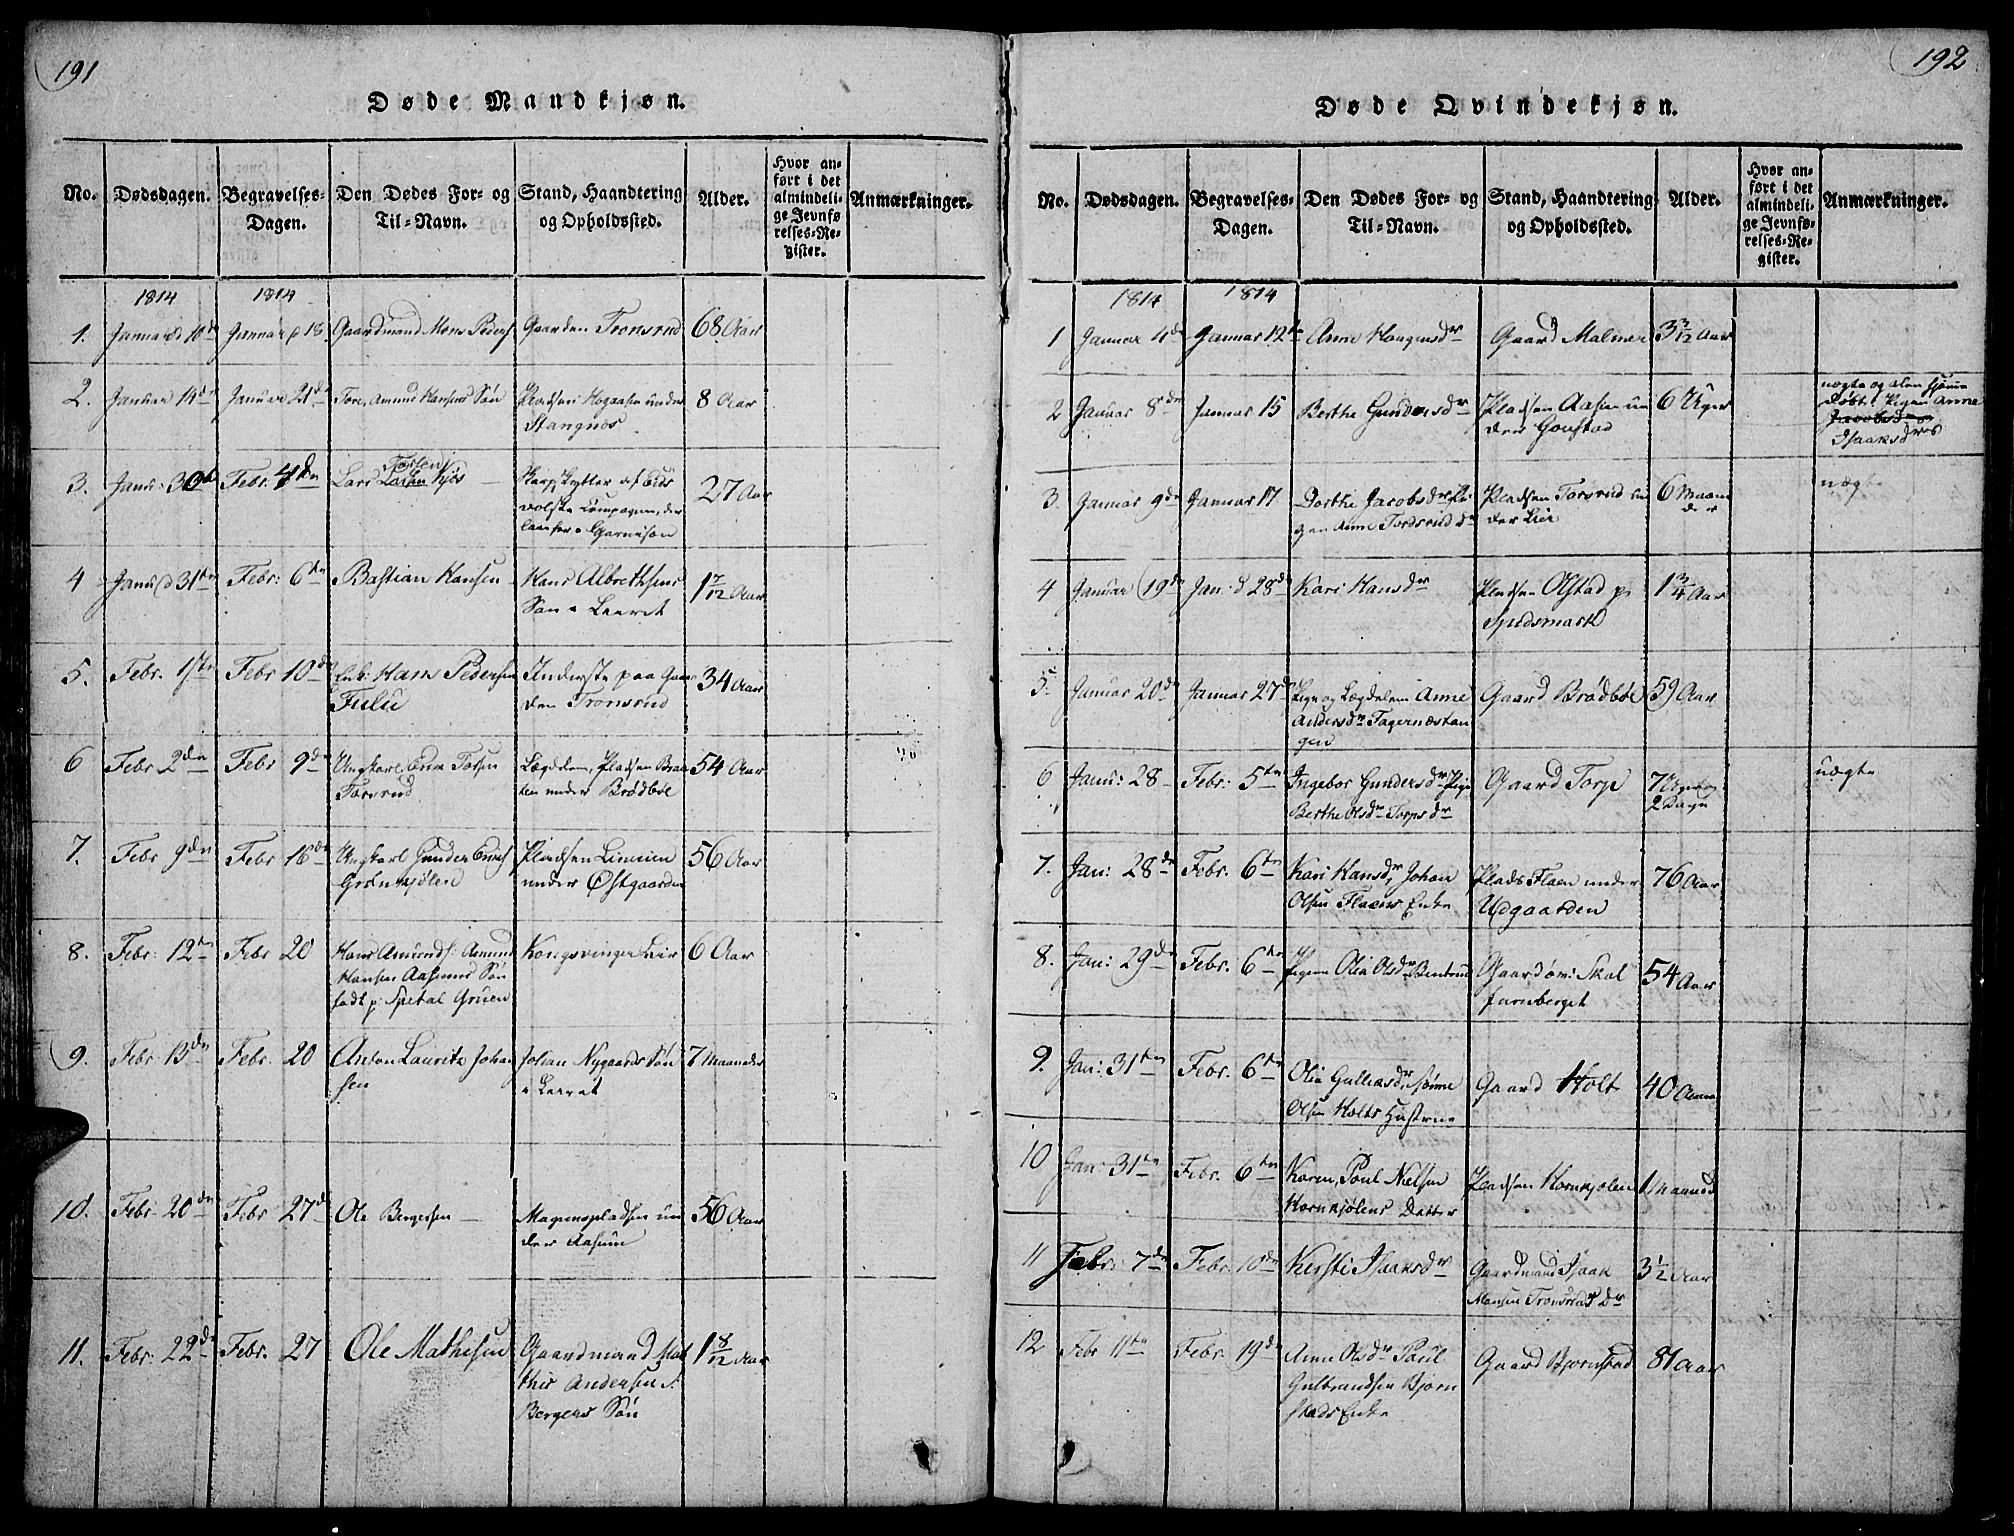 191
Døde Mandkjøn.
No. Dødsdagen. Begravelses- Dagen. Den Dødes For- og Til-Navn. Stand, Haandtering og Opholdssted. Alder. Hvor an- ført i det almindeli- ge Jevnfø- relses-Re- gister. Anmærkninger.
1814 1814
1. Januar d 10de Januar d 18. Gaardmand Mons Peders Gaarden Tronsrud 68 Aar
2. Januar 14de Januar 21de Tore, Amund Hansens Søn Pladsen Hogaasen under
Stangnæs 8 Aar
3. Janu: 30d Febr: 4den Lars Kjos 27 Aar
Compagnie, der
Garnison
4 Janu d 31te Febr: 6te Bastian Hansen Hans Albrethsens
Søn i Leeret 1 7/12 Aar
5. Febr. 1ste Febr 10de Enk: Hans Pedersen
Fulu Inderste paa Gaar
den Tronsrud 34 Aar
6 Febr 2den Febr 9de Ungkarl Torsen
Torsrud Lægdelem, Pladsen
under Brødbøl 54 Aar
7. Febr 9den Febr 16de Ungkarl Gunder
Grønkjølen Pladsen
under Østgaarden 56 Aar
8. Febr: 12te Febr 20 Hans Amunds: Amund
Hansen Aasums Søn
født p: Spetal Gruen Kongsvinger Leir 6 Aar
9. Febr: 13de Febr. 20 Anton Lauritz Johan
sen Johan Nygaards Søn
i Leeret 7 Maaneder
10. Febr: 20de Febr 27d Ole Bergersen Magenspladsen un
der Aasum 56 Aar
11. Febr: 22de Febr. 27 Ole Mathisen Gaardmand Mat
this Andersen S.
Bergers Søn 1 8/12 Aar
192
Døde Qvindekjøn.
No. Dødsdagen. Begravelses- Dagen. Den Dødes For- og Til-Navn. Stand, Haandtering og Opholdssted. Alder. Hvor an- ført i det almindeli- ge Jevnfø- relses-Re- gister. Anmærkninger.
1814 1814
1 Januar 4de Januar 12te Anne Haagensdr Gaard Malmer 3 3/12 Aar
2 Januar 8de Januar 15 Berthe Gundersdr Pladsen Aasen un
der Gonstad 6 Uger uægte og
døbt, Pigen Anne
Jacobsdr
Isaaksdrs
3. Januar 9de Januar 17 Dorthe Jacobsdr Pi
gen Anne Tordsrud dr Pladsen Torsrud un
der Lier 6 Maan
der uægte
4 Januar 19de Jan: d 28de Kari Hansdr Pladsen Olstad p
Spidsmark 1 3/4 Aar
5. Januar 20de Januar 27d Pige og Lægdelem Anne
Andersdr Fagernæstan
gen Gaard Brødbøl 59 Aar
6 Janu: 28 Febr: 5te Ingebor Gundersdr Pige
Berthe Olsdr Torps dr Gaard Torp 7 Uger
2 Dage uægte
7. Jan: 28de Febr. 6te Kari Hansdr, Johan
Olsen Flaens Enke Plads Flaen under
Udgaarden 76 Aar
8. Jan: 29de Febr. 6te Pigen Olia Olsdr Gaard øv: Skal
furuberget 54 Aar
9. Jan: 31te Febr. 6te Olia Gulliksdr
Olsen Holts Hustrue Gaard Holt 40 Aar
10 Jan: 31te Febr. 6te Karen, Poul Nielsen
Hornkjølens Datter Pladsen Hornkjølen 1 Maaned
11 Febr: 7de Febr: 10de Kirsti Isaaksdr Gaardmand Isaak
Monsen Tronsruds dr 3 1/2 Aar
12 Febr 11te Febr. 19de Anne Olsdr Paul
Gulbrandsen Bjørn
stads Enke Gaard Bjørnstad 81 Aar